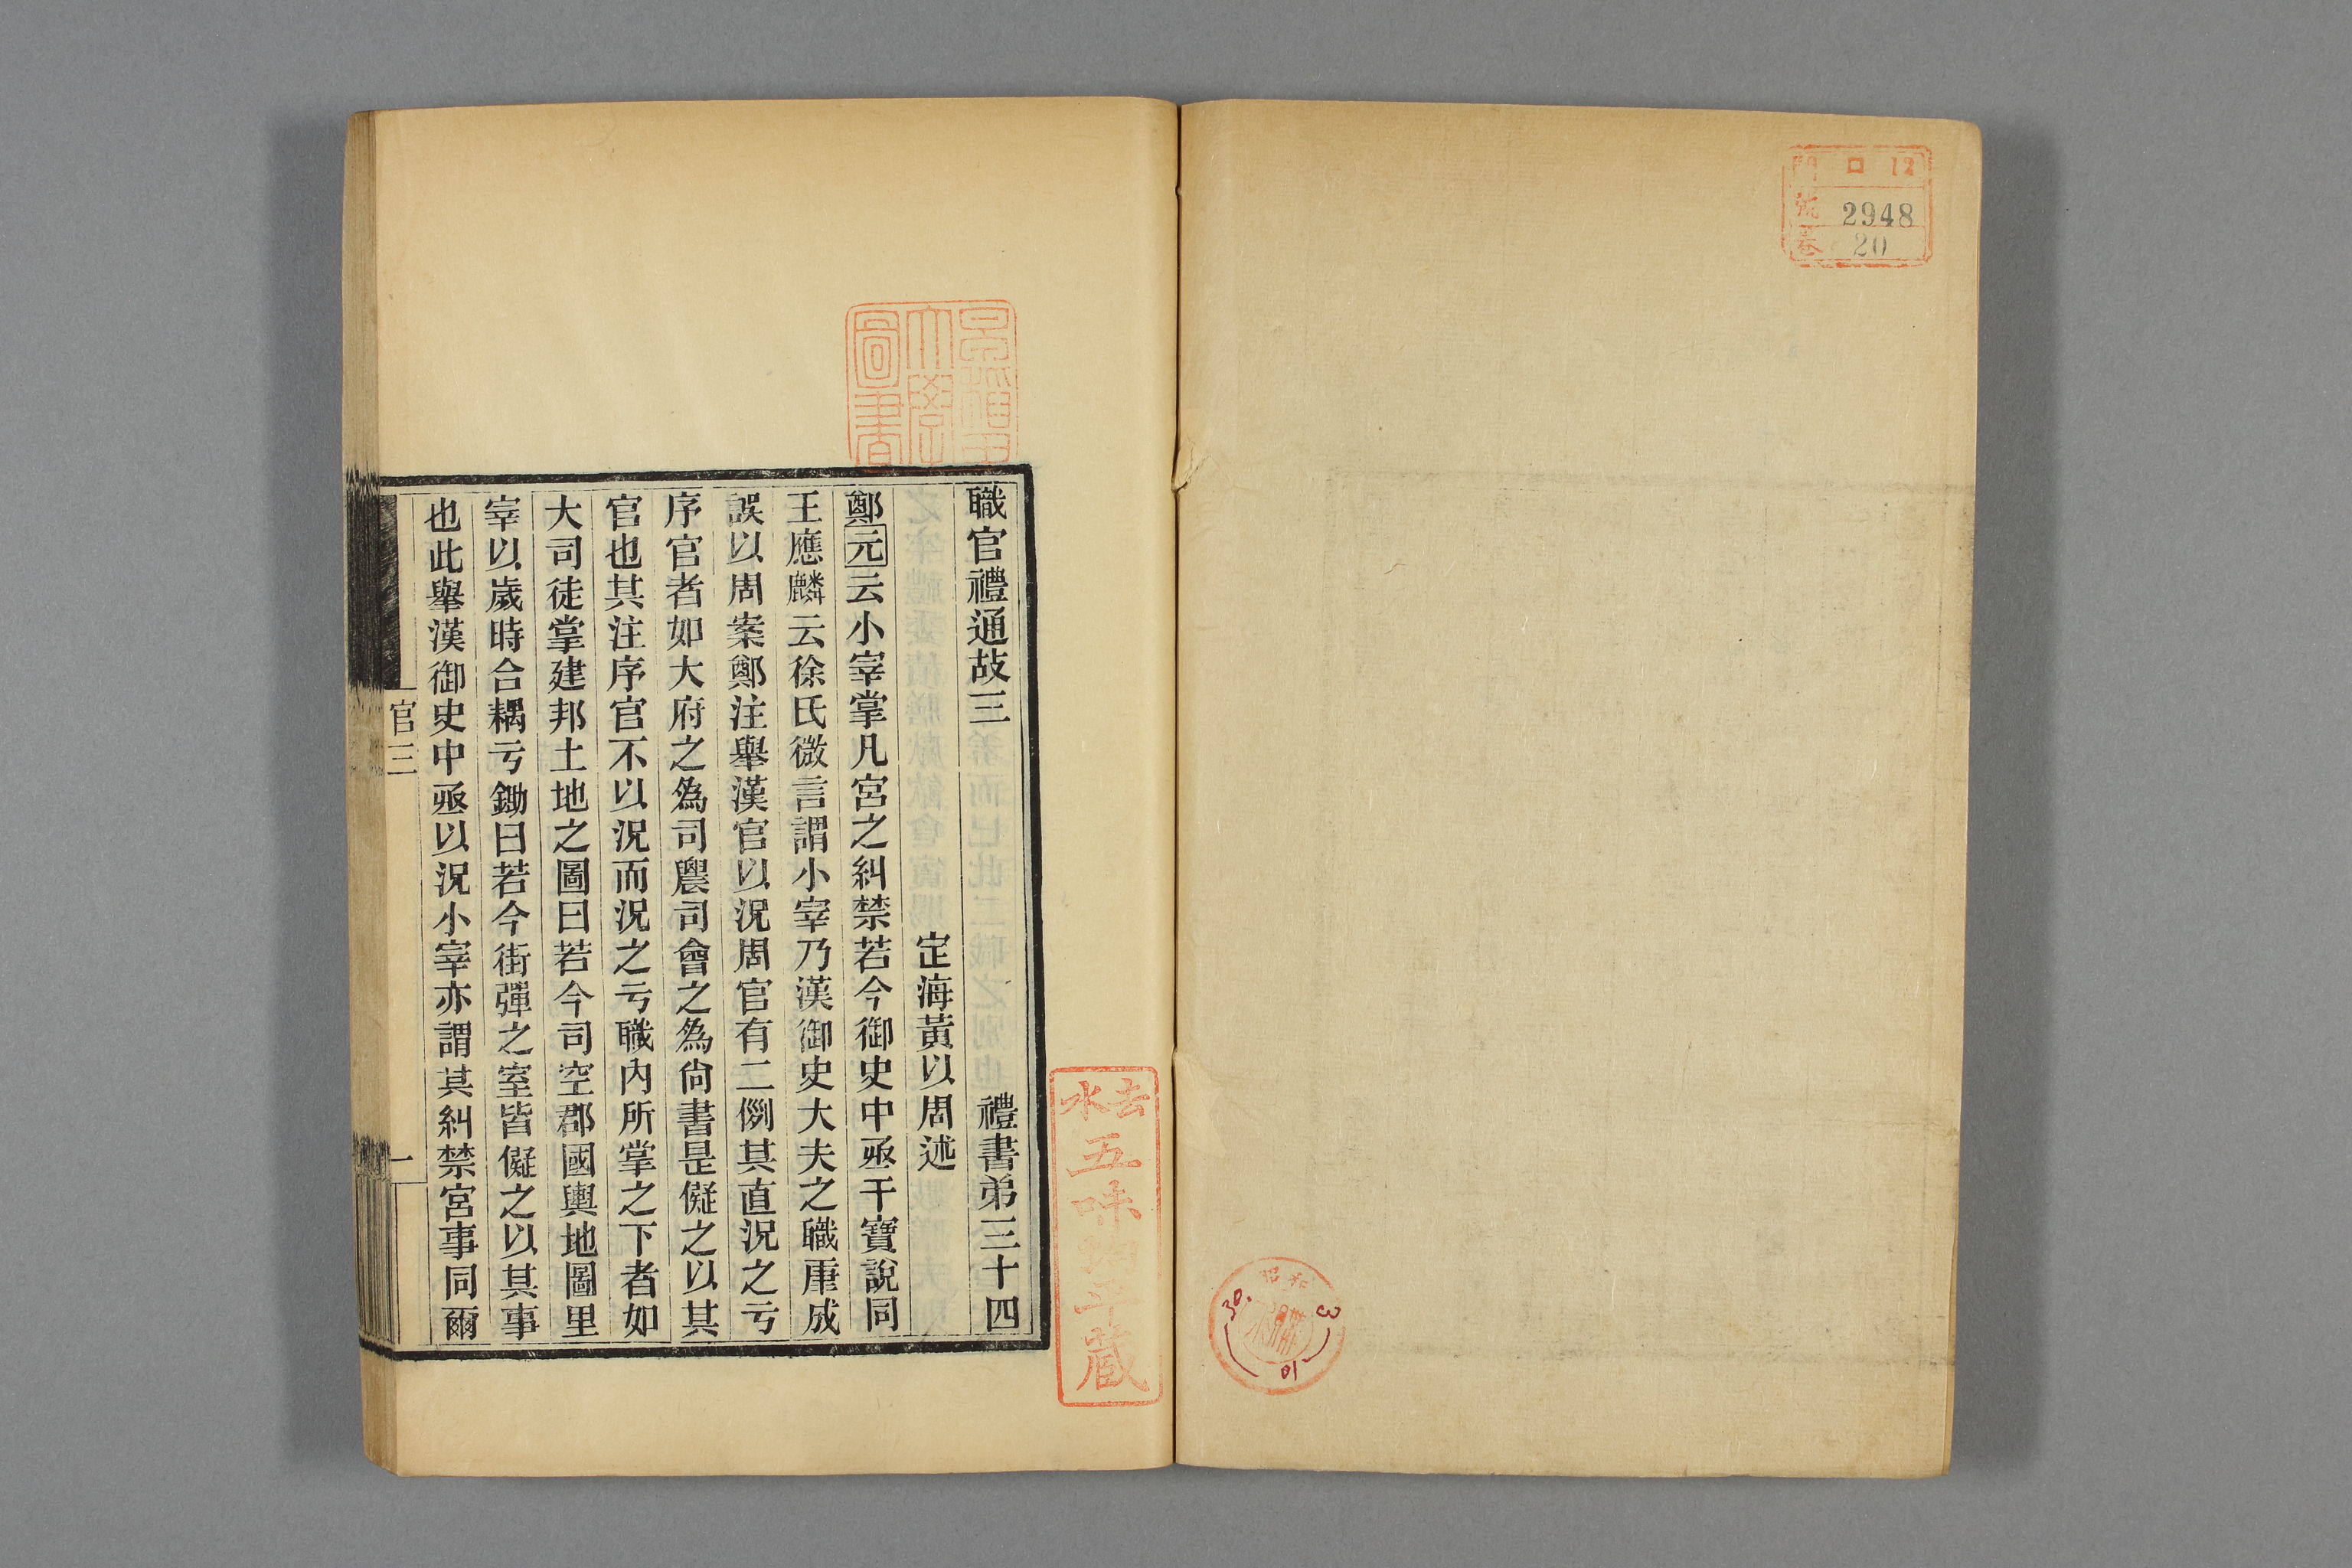 門 口 12
號 2948
卷 20
昭和
30. 3
10
早稲田
大學
圖書
職官禮通故三 禮書弟三十四
定海黃以周述
鄭元云小宰掌凡宮之糾禁若今御史中丞干寶說同
王應麟云徐氏微言謂小宰乃漢御史大夫之職康成
誤以周案鄭注舉漢官以況周官有二例其直況之亏
序官者如大府之爲司農司會之爲尙書是儗之以其
官也其注序官不以況而況之亏職內所掌之下者如
大司徒掌建邦土地之圖曰若今司空郡國輿地圖里
宰以歲時合耦亏鋤曰若今街彈之室皆儗之以其事
也此舉漢御史中丞以況小宰亦謂其糾禁宮事同爾
官三
一
去水
五味
藏